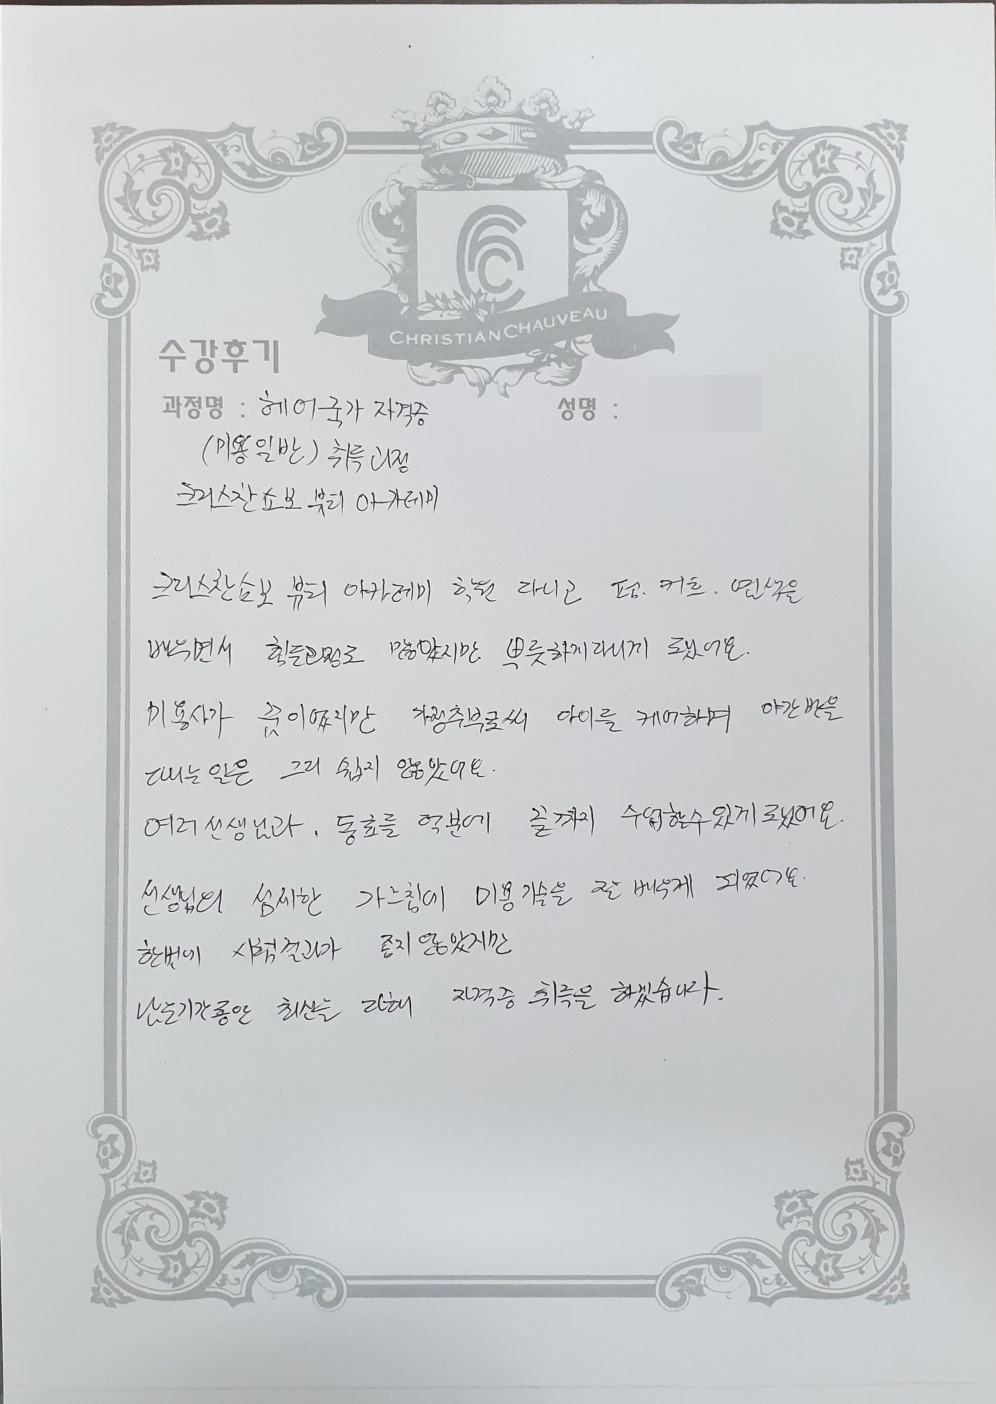 CHRISTIAN CHAUVEAU
수강후기
과정명 : 헤어국가 자격증 성명 :
(미용일반) 취득과정
크리스찬쇼보 뷰티 아카데미
크리스찬쇼보 뷰티 아카데미 학원 다니고 펌. 커트. 염색을
배우면서 힘든과정도 많았지만 뿌듯하게 다니게 되었어요.
미용사가 꿈이였지만 가정주부로써 아이를 케어하며 야간반을
다니는 일은 그리 쉽지 않았어요.
여러 선생님과, 동료들 덕분에 끝까지 수업할수있게 되었어요.
선생님의 섬세한 가르침에 미용기술을 잘 배우게 되었어요.
한번에 시험결과가 좋지 않았지만
남은기간동안 최선을 다해 자격증 취득을 하겠습니다.